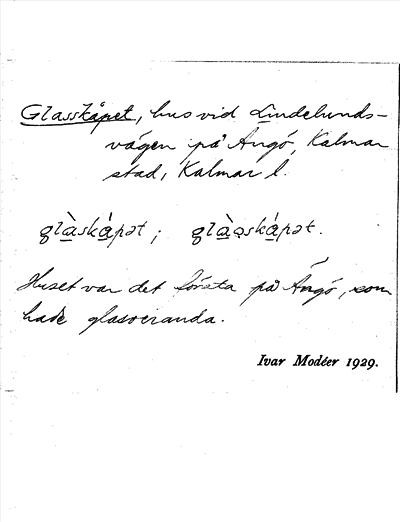 Glasskåpet, hus vid Lindelunds-
vägen på Ängö, Kalmar
stad, Kalmar l.
glàskápət; glàəskápət.
Huset var det första på Ängö, som
hade glasveranda.
Ivar Modéer 1929.